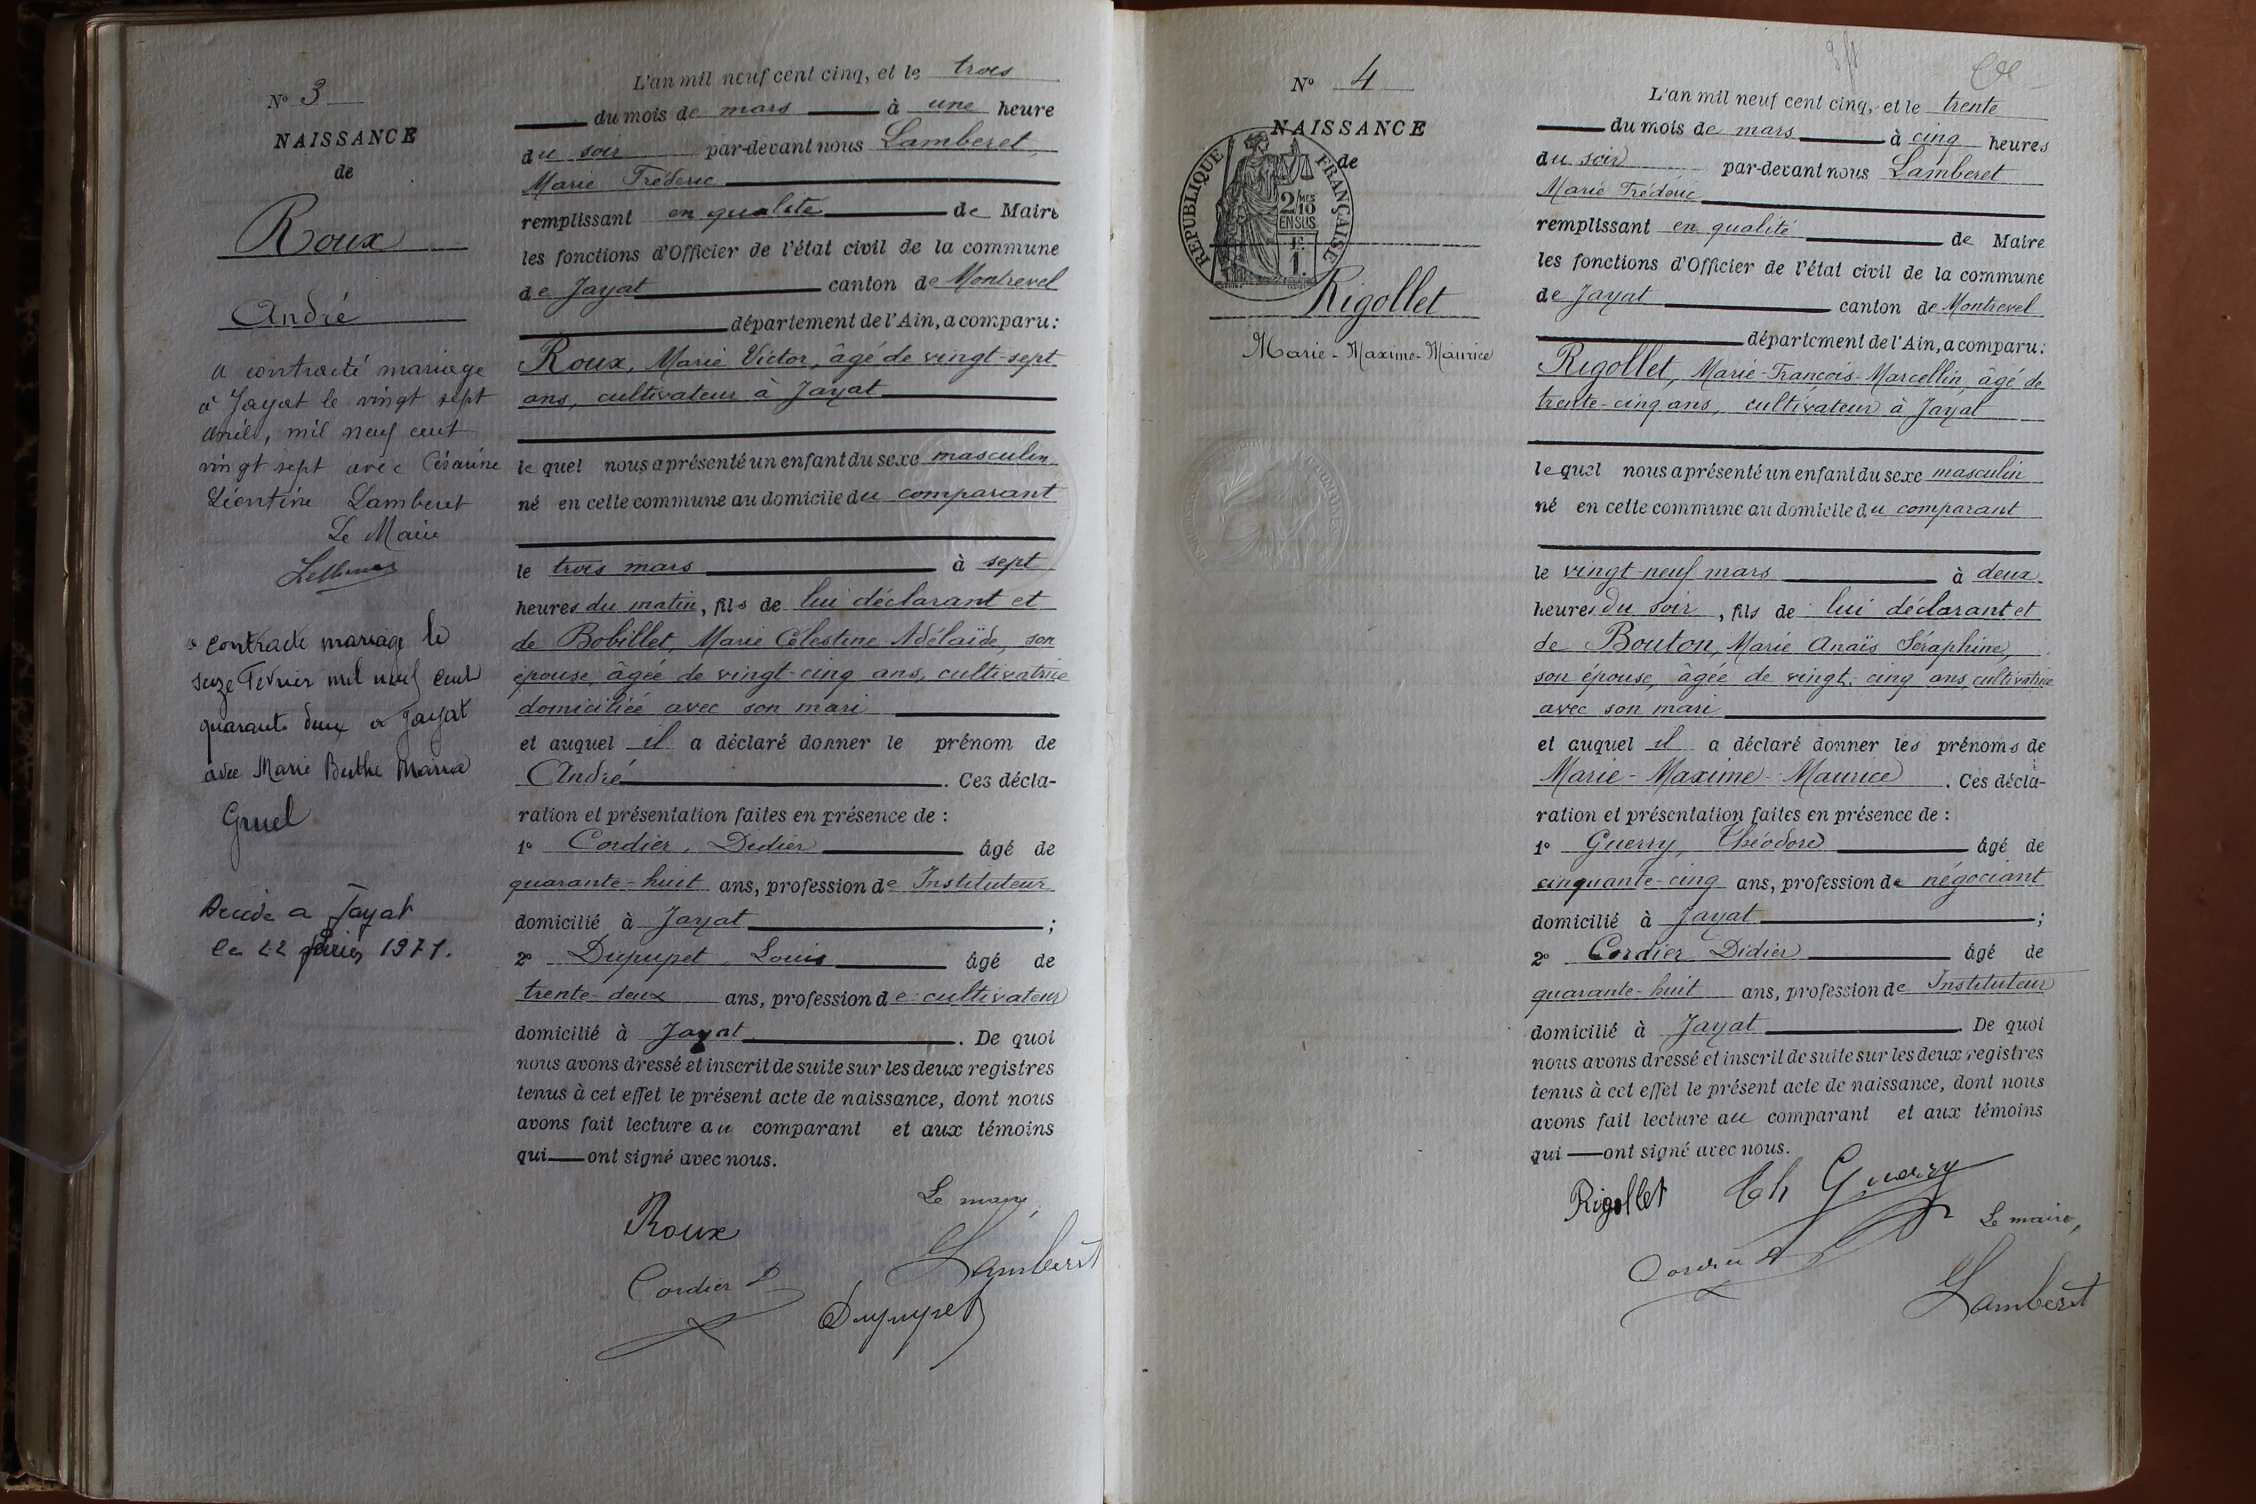 N° 3
NAISSANCE
de
Roux
André
a contracté mariage
à Jayat le vingt sept
avril, mil neuf cent
vingt sept avec Césarine
Léontine Lamberet
Le Maire
contracté mariage le
seize Février mil neuf cent
quarante deux a Jayat
avec Marie Berthe Maria
Gruel
Décédé a Jayat
le 22 février 1971.
L'an mil neuf cent cinq, et le trois
du mois de mars à une heure
du soir par-devant nous Lamberet,
Marie Fréderic
remplissant en qualité de Maire
les fonctions d'Officier de l'état civil de la commune
de Jayat canton de Montrevel
département de l'Ain, a comparu:
Roux, Marie Victor, âgé de vingt-sept
ans, cultivateur à Jayat
le quel nous a présenté un enfant du sexe masculin
né en cette commune au domicile du comparant
le trois mars à sept
heures du matin, fils de lui déclarant et
de Bobillet, Marie Célestine Adélaïde, son
épouse, âgée de vingt-cinq ans, cultivatrice
domiciliée avec son mari
et auquel il a déclaré donner le prénom de
André. Ces décla-
ration et présentation faites en présence de :
1° Cordier, Didier âgé de
quarante-huit ans, profession de Instituteur
domicilié à Jayat ;
2° Dupupet, Louis âgé de
trente-deux ans, profession de cultivateur
domicilié à Jayat. De quoi
nous avons dressé et inscrit de suite sur les deux registres
tenus à cet effet le présent acte de naissance, dont nous
avons fait lecture au comparant et aux témoins
qui ont signé avec nous.
Le maire,
Roux
Lamberet
Cordier D
Dupupet
N° 4
NAISSANCE
de
RÉPUBLIQUE FRANÇAISE
2/10 MES
EN SUS
1 F.
Rigollet
Marie-Maxime-Maurice
L'an mil neuf cent cinq, et le trente
du mois de mars à cinq heures
du soir par-devant nous Lamberet
Marie Frédéric
remplissant en qualité de Maire
les fonctions d'Officier de l'état civil de la commune
de Jayat canton de Montrevel
département de l'Ain, a comparu:
Rigollet, Marie-François-Marcellin, âgé de
trente-cinq ans, cultivateur à Jayat
le quel nous a présenté un enfant du sexe masculin
né en cette commune au domicile du comparant
le vingt-neuf mars à deux
heures du soir, fils de lui déclarant et
de Bouton, Marie Anaïs Séraphine,
son épouse, âgée de vingt-cinq ans, cultivatrice
avec son mari
et auquel il a déclaré donner les prénoms de
Marie-Maxime-Maurice. Ces décla-
ration et présentation faites en présence de :
1° Guerry, Théodore âgé de
cinquante-cinq ans, profession de négociant
domicilié à Jayat ;
2° Cordier Didier âgé de
quarante-huit ans, profession de Instituteur
domicilié à Jayat De quoi
nous avons dressé et inscrit de suite sur les deux registres
tenus à cet effet le présent acte de naissance, dont nous
avons fait lecture au comparant et aux témoins
qui ont signé avec nous.
Rigollet Th Guerry
Le maire,
Cordier D
Lamberet